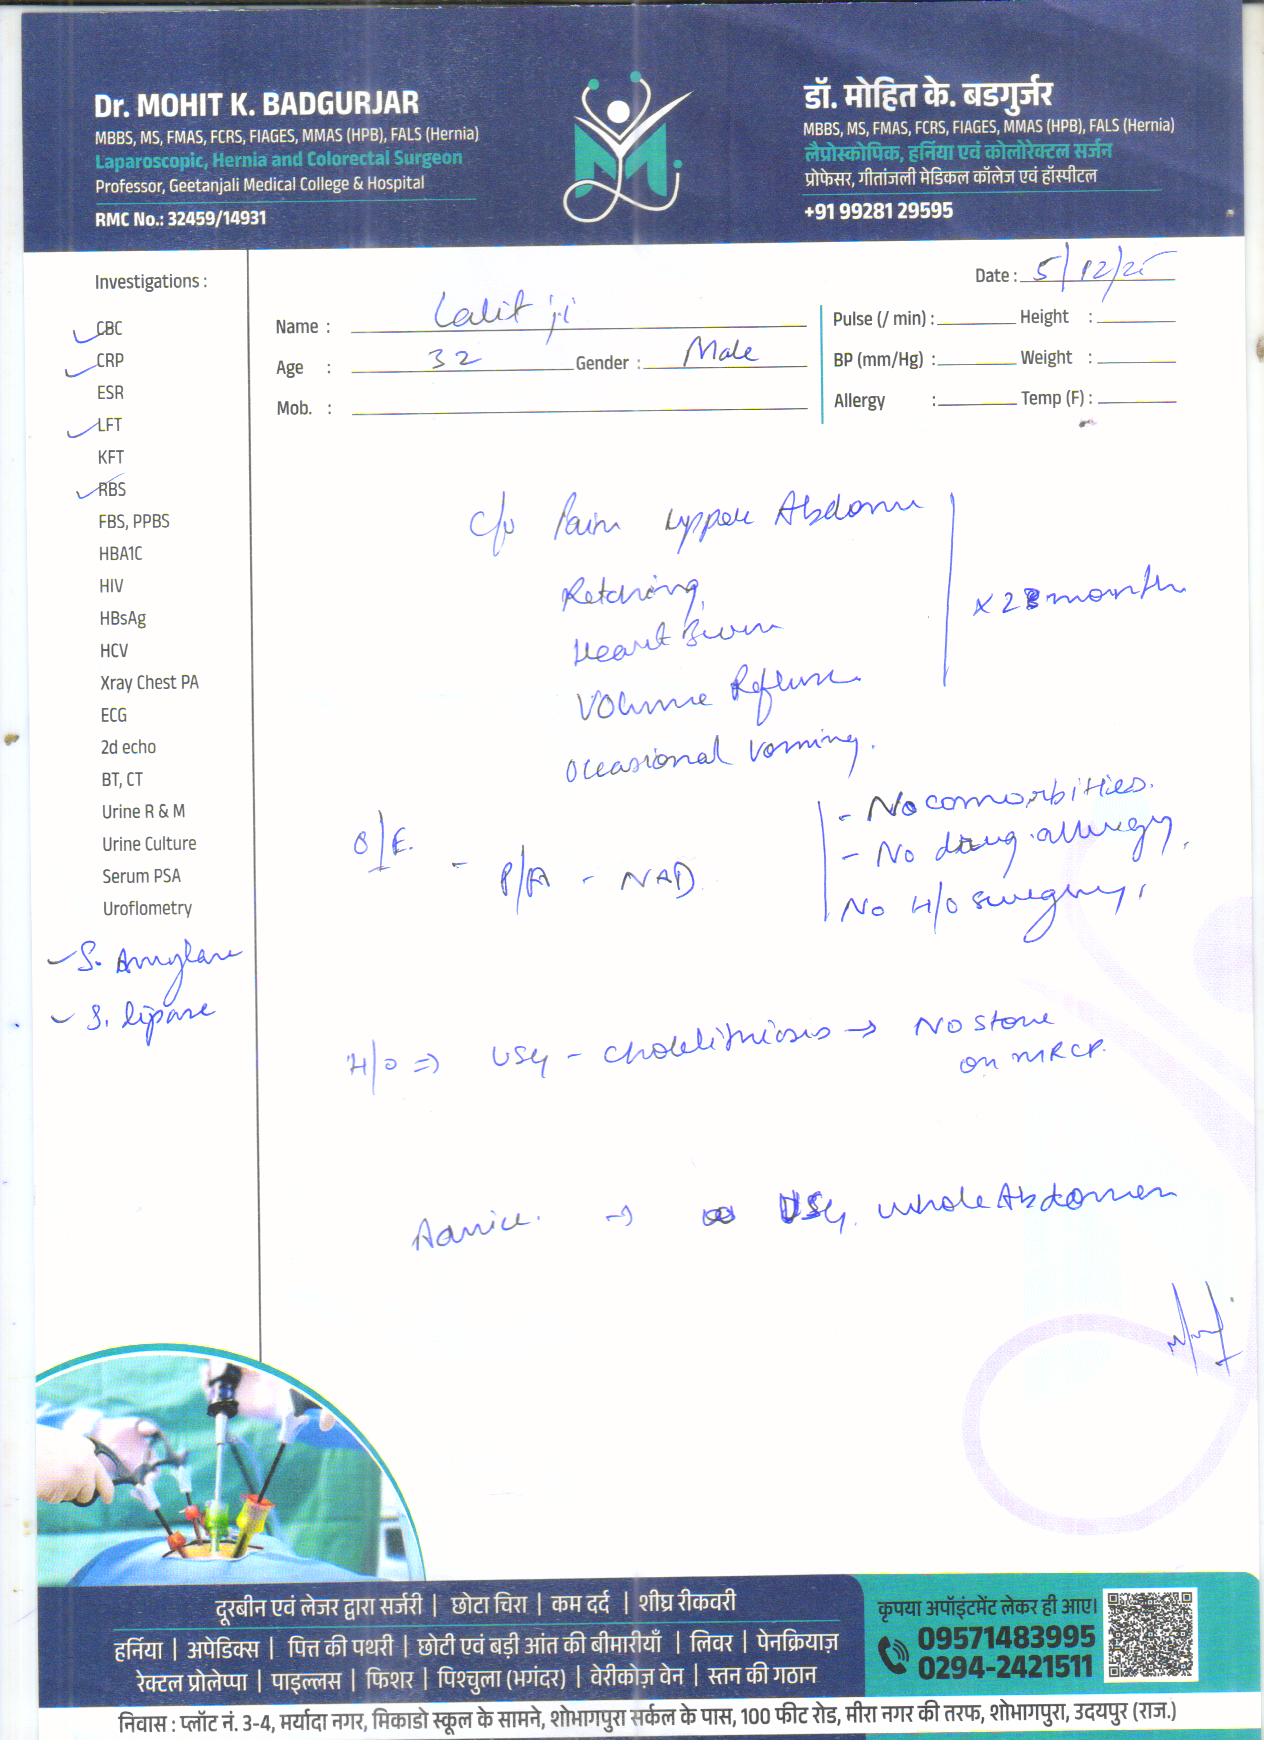 Dr. MOHIT K. BADGURJAR
MBBS, MS, FMAS, FCRS, FIAGES, MMAS (HPB), FALS (Hernia)
Laparoscopic, Hernia and Colorectal Surgeon
Professor, Geetanjali Medical College & Hospital
RMC No.: 32459/14931
डॉ. मोहित के. बडगुर्जर
MBBS, MS, FMAS, FCRS, FIAGES, MMAS (HPB), FALS (Hernia)
लैप्रोस्कोपिक, हर्निया एवं कोलोरेक्टल सर्जन
प्रोफेसर, गीतांजली मेडिकल कॉलेज एवं हॉस्पीटल
+91 99281 29595
Date : 5/12/25
Name : Lalit ji
Age : 32 Gender : Male
Mob. :
Pulse (/ min) : Height :
BP (mm/Hg) : Weight :
Allergy : Temp (F) :
Investigations :
CBC
CRP
ESR
LFT
KFT
RBS
FBS, PPBS
HBA1C
HIV
HBsAg
HCV
Xray Chest PA
ECG
2d echo
BT, CT
Urine R & M
Urine Culture
Serum PSA
Uroflometry
S. Amylase
S. lipase
c/o Pain upper Abdomen
Retching,
Heart Burn
Volume Reflux
occasional vomiting.
x 2 month
O/E. - P/A - NAD
- No comorbities.
- No drug allergy,
No H/o surgery,
H/o ⇒ USG - Cholelithiasis → No stone
on MRCP.
Advice. → USG whole Abdomen
दूरबीन एवं लेजर द्वारा सर्जरी | छोटा चिरा | कम दर्द | शीघ्र रीकवरी
हर्निया | अपेडिक्स | पित्त की पथरी | छोटी एवं बड़ी आंत की बीमारीयाँ | लिवर | पेनक्रियाज़
रेक्टल प्रोलेप्पा | पाइल्लस | फिशर | पिश्चुला (भगंदर) | वेरीकोज़ वेन | स्तन की गठान
कृपया अपॉइंटमेंट लेकर ही आए।
09571483995
0294-2421511
निवास : प्लॉट नं. 3-4, मर्यादा नगर, मिकाडो स्कूल के सामने, शोभागपुरा सर्कल के पास, 100 फीट रोड, मीरा नगर की तरफ, शोभागपुरा, उदयपुर (राज.)